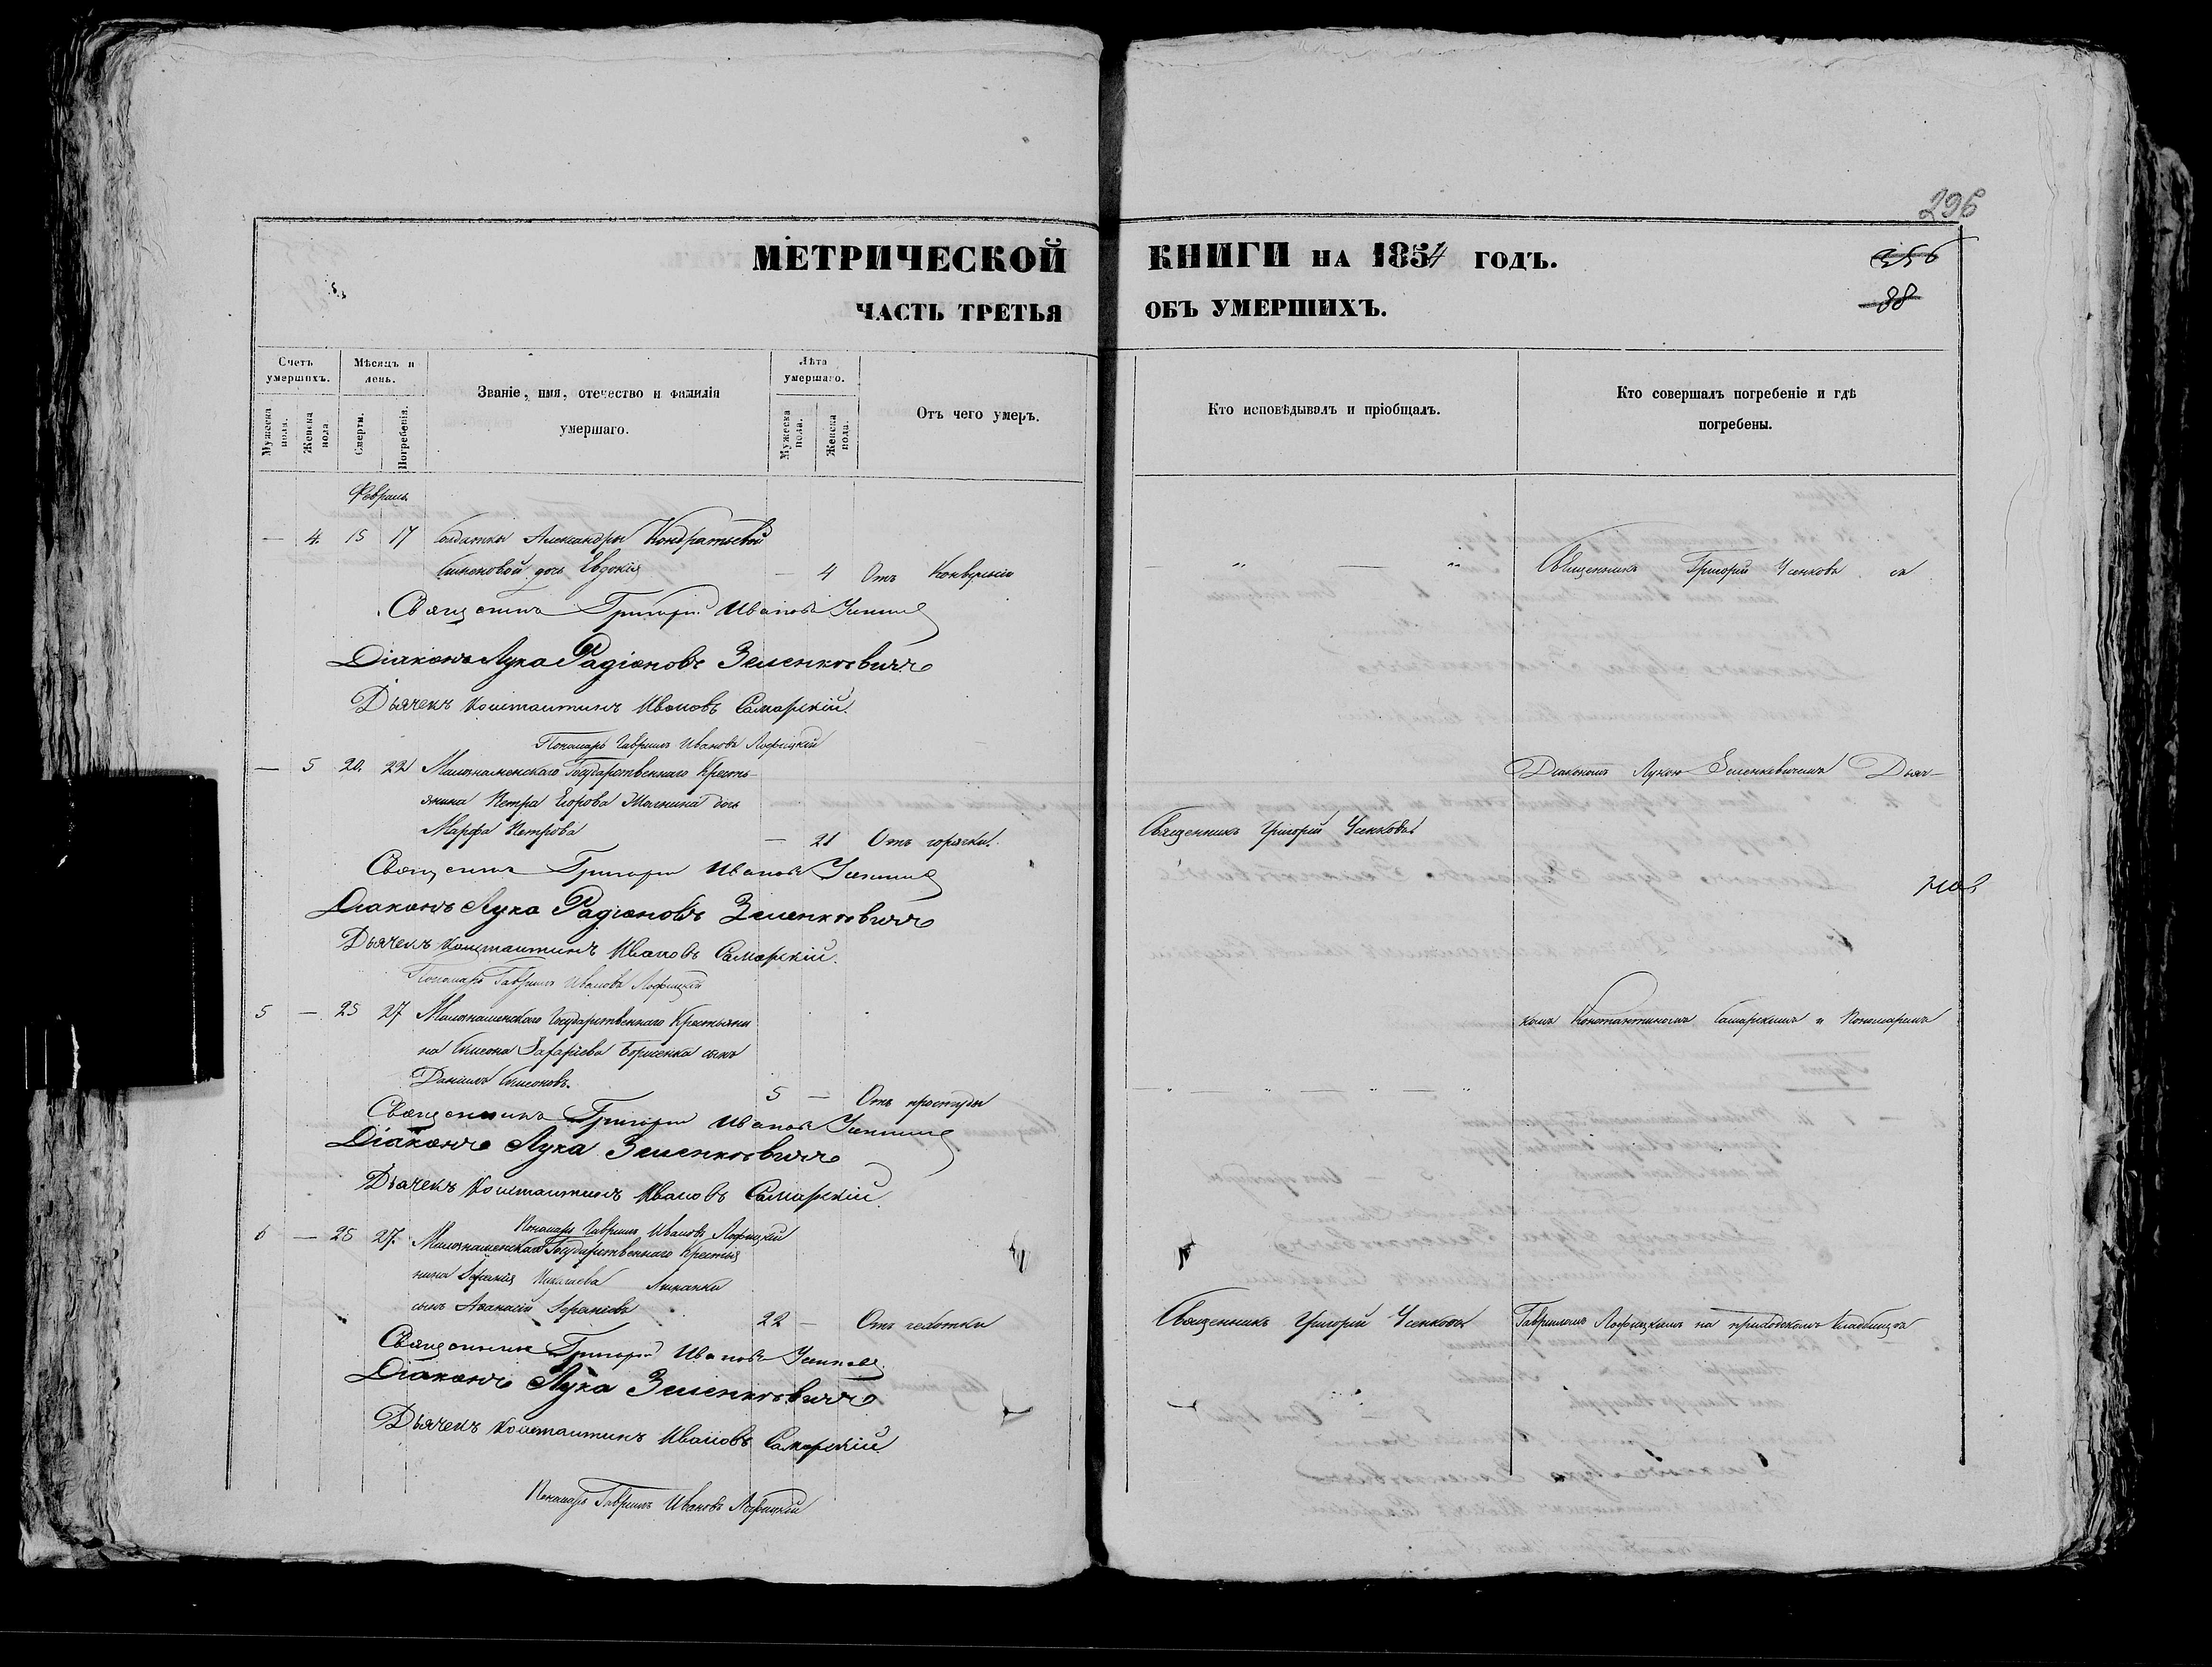 296
МЕТРИЧЕСКОЙ КНИГИ НА 1854 ГОДЪ.
356
ЧАСТЬ ТРЕТЬЯ ОБЪ УМЕРШИХЪ.
88
Счетъ умершихъ.
Мужеска пола.
Женска пола.
Мѣсяцъ и день.
Смерти.
Погребенія.
Званіе, имя, отечество и фамилія умершаго.
Лѣта умершаго.
Мужеска пола.
Женска пола.
Отъ чего умеръ.
Кто исповѣдывалъ и пріобщалъ.
Кто совершалъ погребеніе и гдѣ погребены.
Февраль
— 4. 15 17 Солдатки Александры Кондратьевой
Симоновой дочь Евдокія — 4 Отъ Конвульсіи
" — " Священникъ Григорій Усенковъ съ
Священникъ Григорій Ивановъ
Діаконъ Лука Радіоновъ Зеленкевичъ
Дьячекъ Константинъ Ивановъ Самарскій.
Пономарь Гавріилъ Ивановъ Лофицкій
— 5 20. 22 Государственнаго Кресть-
янина Петра Егорова дочь
Марфа Петрова — 21 Отъ горячки.
Священникъ Григорій Усенковъ
Діакономъ Лукою Зеленкевичемъ Дьяч-
Священникъ Григорій Ивановъ
Діаконъ Лука Радіоновъ Зеленкевичъ
Дьячекъ Константинъ Ивановъ Самарскій.
Пономарь Гавріилъ Ивановъ Лофицкій
5 — 25 27 Государственнаго Крестьяни
на Симеона Захаріева Борисенка сынъ
Даніилъ Симеоновъ. 5 — Отъ простуды
комъ Константиномъ Самарскимъ и Пономаремъ
Священникъ Григорій Ивановъ
Діаконъ Лука Зеленкевичъ
Дьячекъ Константинъ Ивановъ Самарскій.
Пономарь Гавріилъ Ивановъ Лофицкій
6 — 25 27. Государственнаго Крестья
нина
сынъ Афанасій 22 — Отъ чехотки
Священникъ Григорій Усенковъ
Гавріиломъ Лофицкимъ на приходскомъ кладбищѣ
Священникъ Григорій Ивановъ
Діаконъ Лука Зеленкевичъ
Дьячекъ Константинъ Ивановъ Самарскій.
Пономарь Гавріилъ Ивановъ Лофицкій